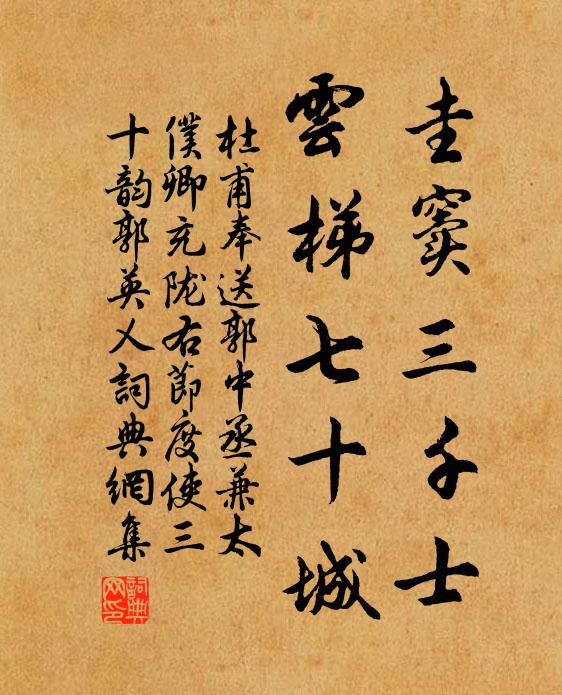 圭窦三千士
雲梯七十城
杜甫奉送郭中丞兼太
僕卿充陇右節度使三
十韵郭英乂詞典網集
詞典
网印